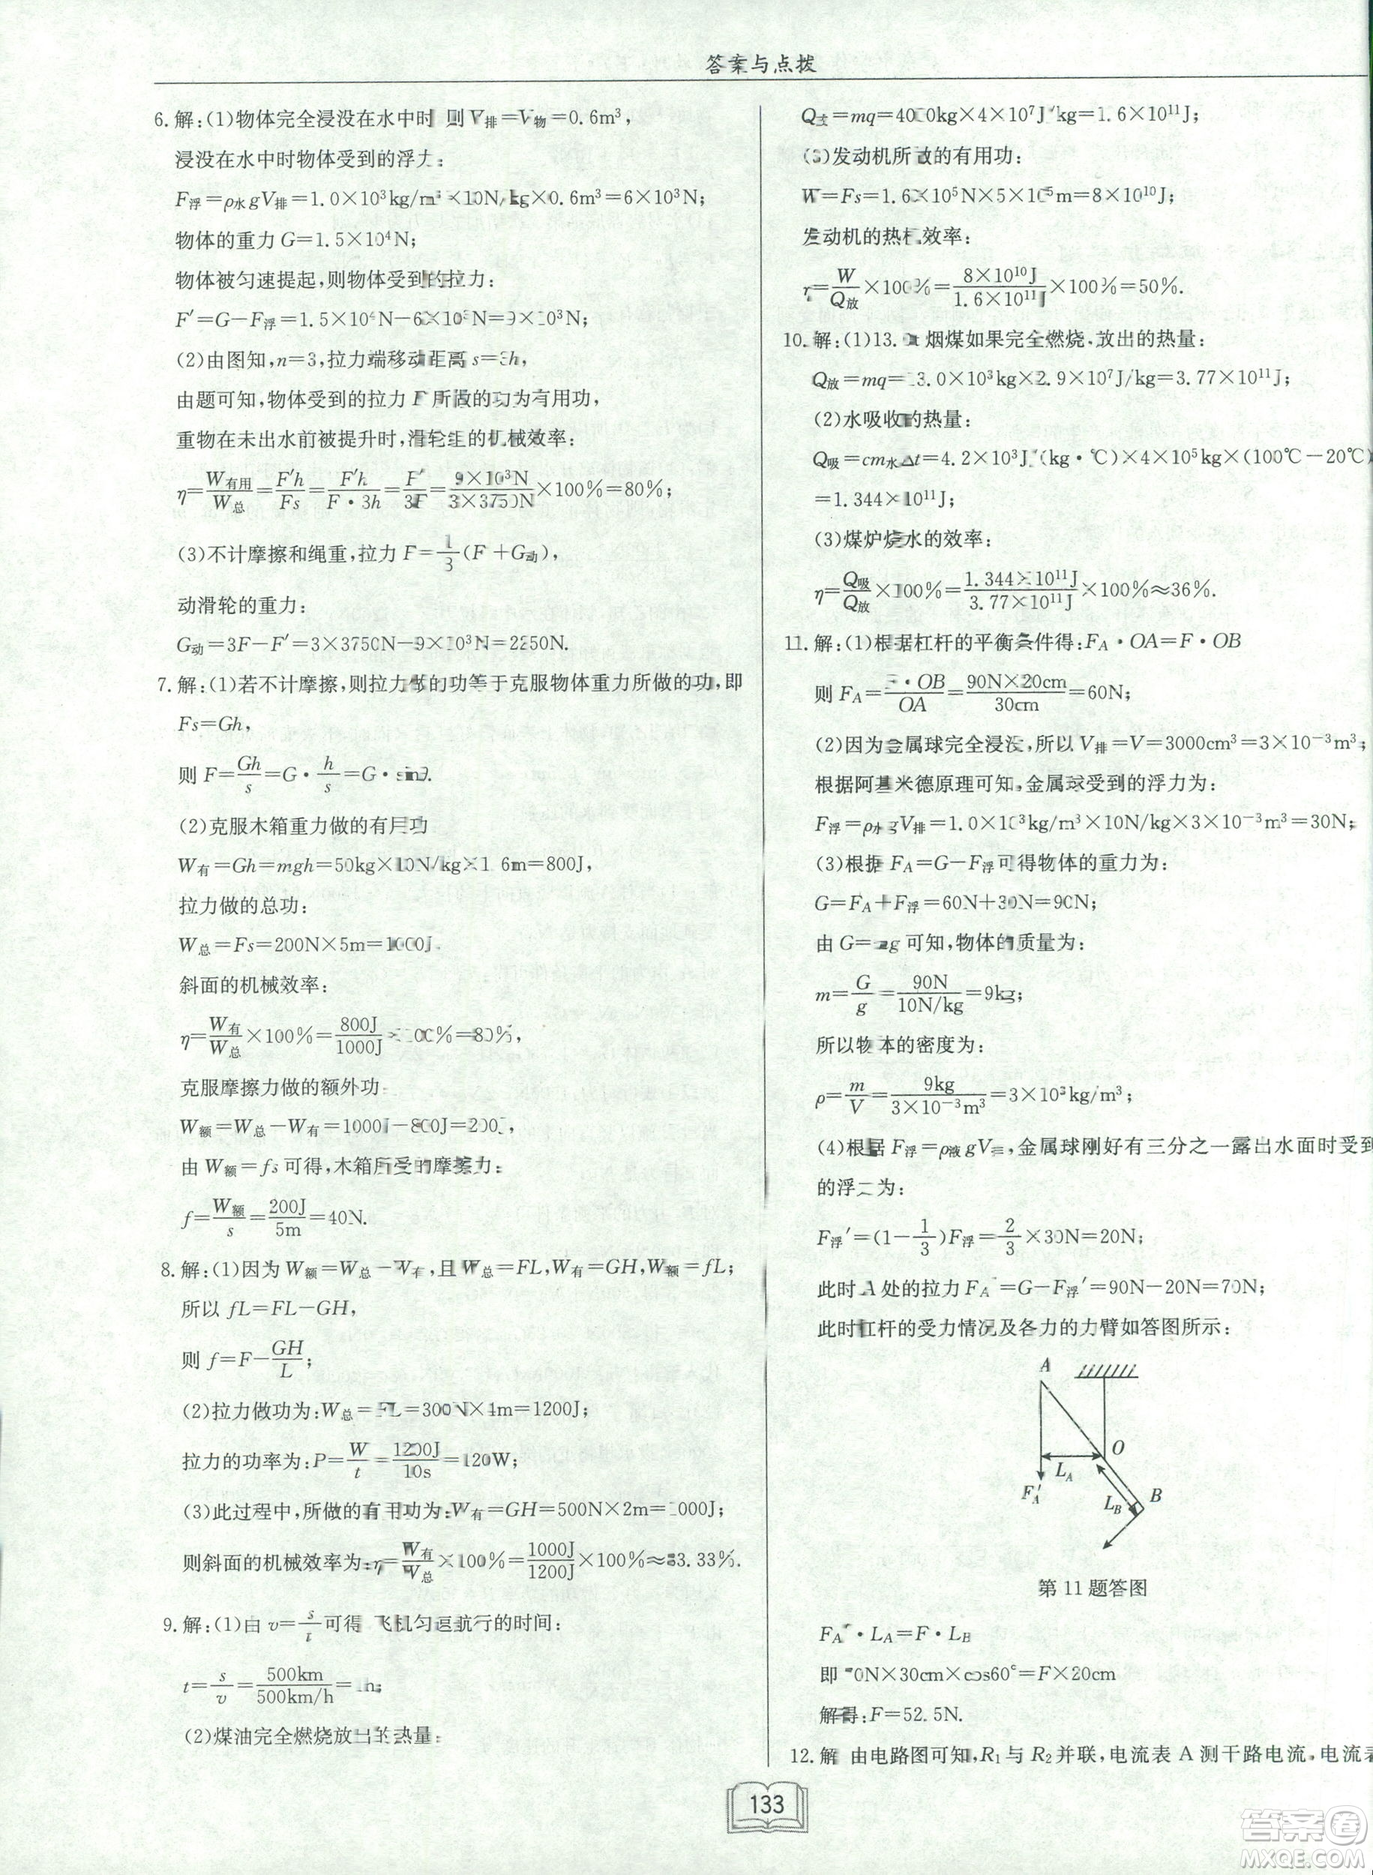 答案与点拨
6. 解:(1)物体完全浸没在水中时 则 V排=V物=0.6m³,
浸没在水中时物体受到的浮力:
F浮=ρ水gV排=1.0×10³kg/m³×10N/kg×0.6m³=6×10³N;
物体的重力 G=1.5×10⁴N;
物体被匀速提起,则物体受到的拉力:
F′=G−F浮=1.5×10⁴N−6×10³N=9×10³N;
(2)由图知,n=3,拉力端移动距离 s=3h,
由题可知,物体受到的拉力 F′所做的功为有用功,
重物在未出水前被提升时,滑轮组的机械效率:
η=W有用/W总=F′h/Fs=F′h/F·3h=F′/3F=9×10³N/3×3750N×100%=80%;
(3)不计摩擦和绳重,拉力 F=1/3(F′+G动),
动滑轮的重力:
G动=3F−F′=3×3750N−9×10³N=2250N.
7. 解:(1)若不计摩擦,则拉力做的功等于克服物体重力所做的功,即
Fs=Gh,
则 F=Gh/s=G·h/s=G·sinθ.
(2)克服木箱重力做的有用功
W有=Gh=mgh=50kg×10N/kg×1.6m=800J,
拉力做的总功:
W总=Fs=200N×5m=1000J.
斜面的机械效率:
η=W有/W总×100%=800J/1000J×100%=80%.
克服摩擦力做的额外功:
W额=W总−W有=1000J−800J=200J,
由 W额=fs 可得,木箱所受的摩擦力:
f=W额/s=200J/5m=40N.
8. 解:(1)因为 W额=W总−W有,且 W总=FL,W有=GH,W额=fL;
所以 fL=FL−GH,
则 f=F−GH/L;
(2)拉力做功为:W总=FL=300N×4m=1200J,
拉力的功率为:P=W/t=1200J/10s=120W;
(3)此过程中,所做的有用功为:W有=GH=500N×2m=1000J;
则斜面的机械效率为:η=W有/W总×100%=1000J/1200J×100%≈83.33%.
9. 解:(1)由 v=s/t可得 飞机匀速航行的时间:
t=s/v=500km/500km/h=1h;
(2)煤油完全燃烧放出的热量:
Q放=mq=4000kg×4×10⁷J/kg=1.6×10¹¹J;
(3)发动机所做的有用功:
W=Fs=1.6×10⁵N×5×10⁵m=8×10¹⁰J;
发动机的热机效率:
η=W/Q放×100%=8×10¹⁰J/1.6×10¹¹J×100%=50%.
10. 解:(1)13.0t 烟煤如果完全燃烧,放出的热量:
Q放=mq=13.0×10³kg×2.9×10⁷J/kg=3.77×10¹¹J;
(2)水吸收的热量:
Q吸=cm水Δt=4.2×10³J/(kg·℃)×4×10⁵kg×(100℃−20℃)
=1.344×10¹¹J;
(3)煤炉烧水的效率:
η=Q吸/Q放×100%=1.344×10¹¹J/3.77×10¹¹J×100%≈36%.
11. 解:(1)根据杠杆的平衡条件得:FA·OA=F·OB
则 FA=F·OB/OA=90N×20cm/30cm=60N;
(2)因为金属球完全浸没,所以 V排=V=3000cm³=3×10⁻³m³,
根据阿基米德原理可知,金属球受到的浮力为:
F浮=ρ水gV排=1.0×10³kg/m³×10N/kg×3×10⁻³m³=30N;
(3)根据 FA=G−F浮可得物体的重力为:
G=FA+F浮=60N+30N=90N;
由 G=mg 可知,物体的质量为:
m=G/g=90N/10N/kg=9kg;
所以物体的密度为:
ρ=m/V=9kg/3×10⁻³m³=3×10³kg/m³;
(4)根据 F浮=ρ液gV排,金属球刚好有三分之一露出水面时受到
的浮力为:
F浮′=(1−1/3)F浮=2/3×30N=20N;
此时 A 处的拉力 FA′=G−F浮′=90N−20N=70N;
此时杠杆的受力情况及各力的力臂如答图所示:
A
O
LA
FA′
LB
B
第 11 题答图
FA′·LA=F·LB
即 70N×30cm×cos60°=F×20cm
解得:F=52.5N.
12. 解 由电路图可知,R₁与 R₂并联,电流表 A 测干路电流,电流表
133
答案圈
MXQE.COM